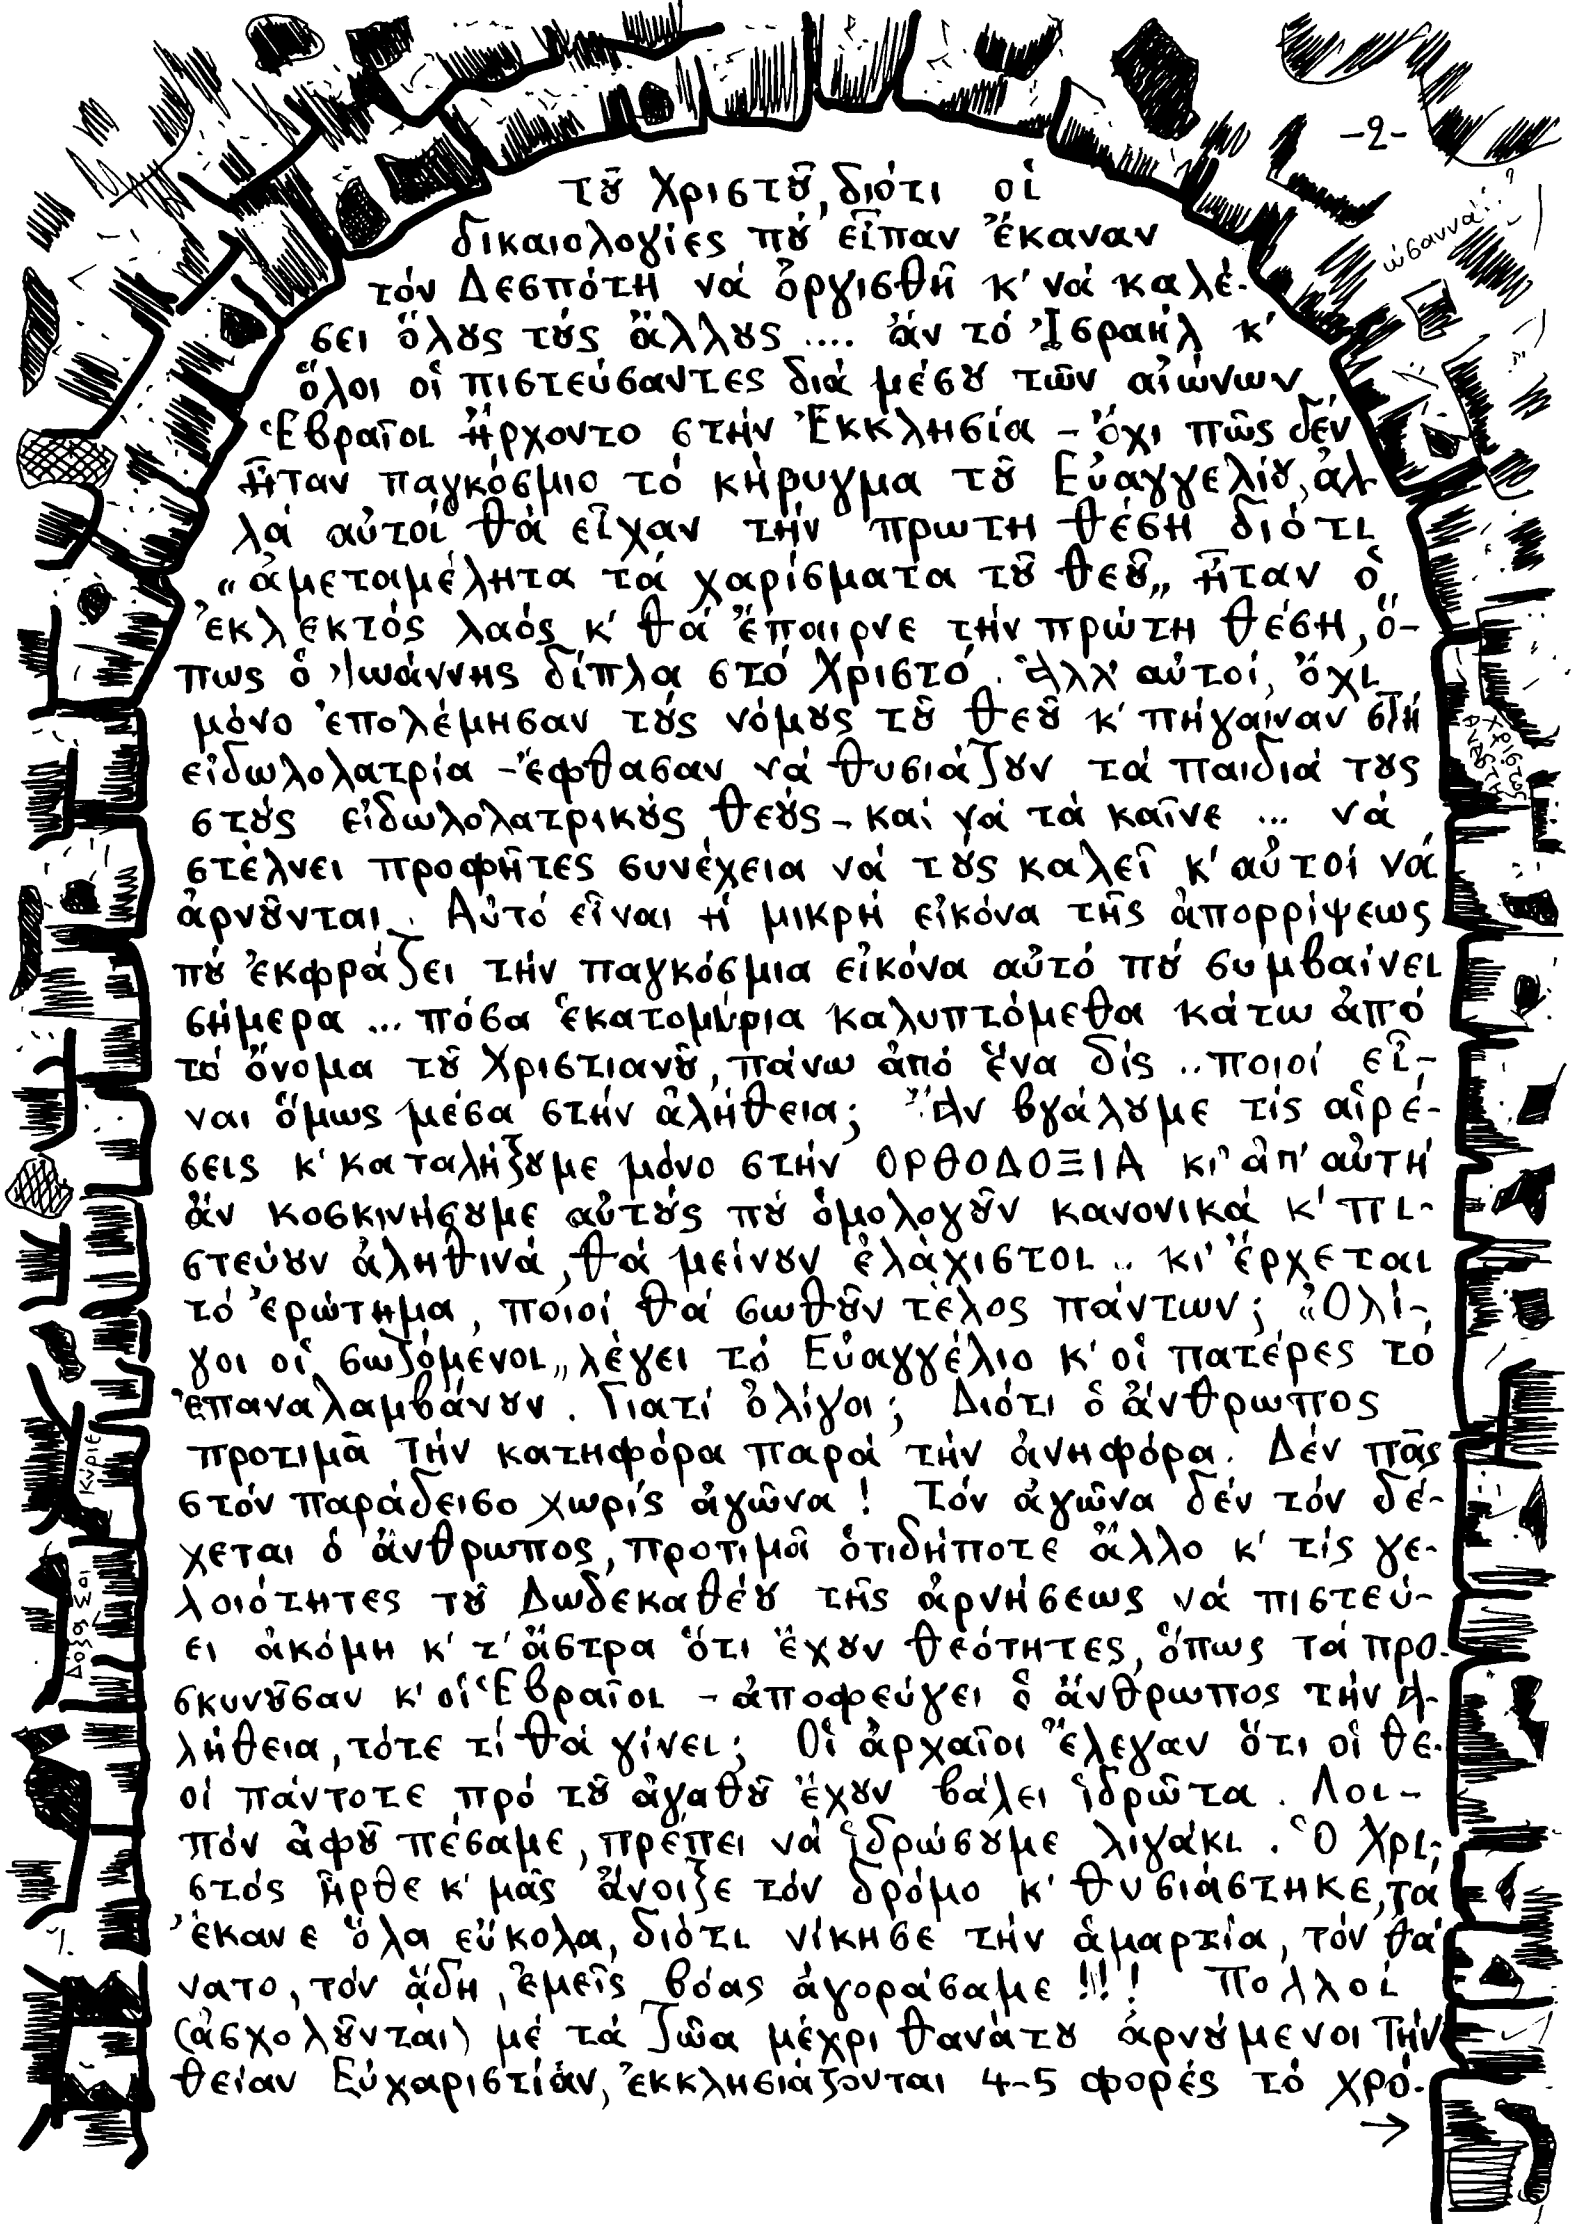 -2-
τȣ͂ Χριστȣ͂, διότι οἱ
δικαιολογίες πȣ́ εἶπαν ἔκαναν
τόν Δεσπότη νά ὀργισθῆ κ' νά καλέ-
σει ὅλȣς τȣ́ς ἄλλȣς .... ἄν τό Ἰσραήλ κ'
ὅλοι οἱ πιστεύσαντες διά μέσȣ τῶν αἰώνων
Ἑβραῖοι ἤρχοντο στήν Ἐκκλησία - ὄχι πῶς δέν
ἦταν παγκόσμιο τό κήρυγμα τȣ͂ Εὐαγγελίȣ, ἀλ-
λά αὐτοί θά εἶχαν τήν πρωτη θέση διότι
„ἀμεταμέλητα τά χαρίσματα τȣ͂ θεȣ͂„ ἦταν ὁ
ἐκλεκτός λαός κ' θά ἔπαιρνε τήν πρώτη θέση, ὅ-
πως ὁ Ἰωάννης δίπλα στό Χριστό. Ἀλλ' αὐτοί, ὄχι
μόνο ἐπολέμησαν τȣ́ς νόμȣς τȣ͂ θεȣ͂ κ' πήγαιναν στή
εἰδωλολατρία - ἔφθασαν νά θυσιάζȣν τά παιδιά τȣς
στȣ́ς εἰδωλολατρικȣ́ς θεȣ́ς - καί γά τά καῖνε ... νά
στέλνει προφῆτες συνέχεια νά τȣ́ς καλεῖ κ' αὐτοί νά
ἀρνȣ͂νται. Αὐτό εἶναι ἡ μικρή εἰκόνα τῆς ἀπορρίψεως
πȣ́ ἐκφράζει τήν παγκόσμια εἰκόνα αὐτό πȣ́ συμβαίνει
σήμερα ... πόσα ἑκατομύρια καλυπτόμεθα κάτω ἀπό
τό ὄνομα τȣ͂ Χριστιανȣ͂, πάνω ἀπό ἕνα δίς .. ποιοί εἶ-
ναι ὅμως μέσα στήν ἀλήθεια; Ἄν βγάλȣμε τίς αἱρέ-
σεις κ' καταλήξȣμε μόνο στήν ΟΡΘΟΔΟΞΙΑ κι' ἀπ' αὐτή
ἄν κοσκινήσȣμε αὐτȣ́ς πȣ́ ὁμολογȣ͂ν κανονικά κ' πι-
στεύȣν ἀληθινά, θά μείνȣν ἐλάχιστοι .. κι' ἔρχεται
τό ἐρώτημα, ποιοί θά σωθȣ͂ν τέλος πάντων; „Ὀλί-
γοι οἱ σωζόμενοι„ λέγει τό Εὐαγγέλιο κ' οἱ πατέρες τό
ἐπαναλαμβάνȣν. Γιατί ὀλίγοι; Διότι ὁ ἄνθρωπος
προτιμᾶ τήν κατηφόρα παρά τήν ἀνηφόρα. Δέν πᾶς
στόν παράδεισο χωρίς ἀγῶνα! Τόν ἀγῶνα δέν τόν δέ-
χεται ὁ ἄνθρωπος, προτιμᾶ ὁτιδήποτε ἄλλο κ' τίς γε-
λοιότητες τȣ͂ Δωδεκαθέȣ τῆς ἀρνήσεως νά πιστεύ-
ει ἀκόμη κ' τ' ἄστρα ὅτι ἔχȣν θεότητες, ὅπως τά προ-
σκυνȣ͂σαν κ' οἱ Ἑβραῖοι - ἀποφεύγει ὁ ἄνθρωπος τήν ἀ-
λήθεια, τότε τί θά γίνει; Οἱ ἀρχαῖοι ἔλεγαν ὅτι οἱ θε-
οί πάντοτε πρό τȣ͂ ἀγαθȣ͂ ἔχȣν βάλει ἱδρῶτα. Λοι-
πόν ἀφȣ͂ πέσαμε, πρέπει νά ἱδρώσȣμε λιγάκι. Ὁ Χρι-
στός ἦρθε κ' μᾶς ἄνοιξε τόν δρόμο κ' θυσιάστηκε, τά
ἔκανε ὅλα εὔκολα, διότι νίκησε τήν ἁμαρτία, τόν θά
νατο, τόν ἅδη, ἐμεῖς βόας ἀγοράσαμε !!! Πολλοί
(ἀσχολȣ͂νται) μέ τά ζῶα μέχρι θανάτȣ ἀρνȣ́μενοι τήν
θείαν Εὐχαριστίαν, ἐκκλησιάζονται 4-5 φορές τό χρό-
→
ὡσαννά!
Χριστός
Ἀνέστη
Κύριε
Δόξα Σοι